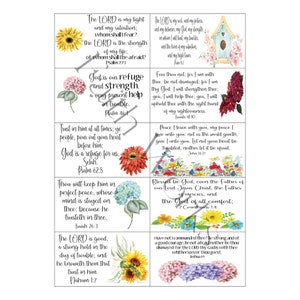 The LORD is my light
and my salvation;
whom shall I fear?
the LORD is the strength
of my life;
of whom shall I be afraid?
Psalm 27:1
God is our refuge
and strength,
a very present help
in trouble.
Psalm 46:1
Fear thou not; for I am with
thee: be not dismayed;
for I am thy God:
I will strengthen thee; yea,
I will help thee; yea, I will
uphold thee with the right hand
of my righteousness.
Isaiah 41:10
Trust in him at all times; ye
people, pour out your heart
before him:
God is a refuge for us.
Selah.
Psalm 62:8
Peace I leave with you, my peace I
give unto you: not as the world giveth,
give I unto you. Let not your heart be
troubled, neither let it be afraid.
John 14:27
Thou wilt keep him in
perfect peace, whose
mind is stayed on
thee: because he
trusteth in thee.
Isaiah 26:3
Blessed be God, even the Father of
our Lord Jesus Christ, the Father
of mercies, and
the God of all comfort;
The LORD is good,
a strong hold in the
day of trouble; and
he knoweth them that
trust in him.
Nahum 1:7
Have not I commanded thee? Be strong and
of a good courage; be not afraid, neither be thou
dismayed: for the LORD thy God is with thee
whithersoever thou goest.